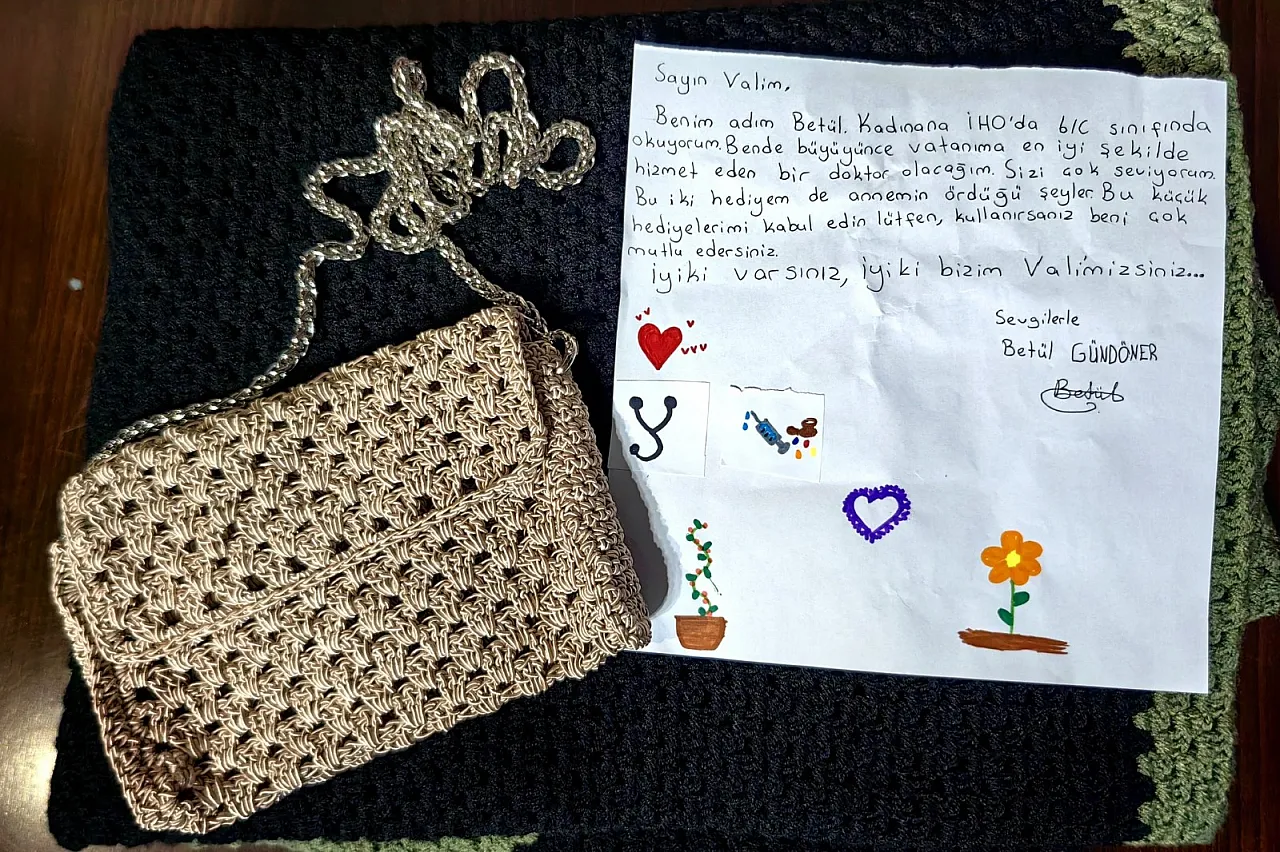 Sayın Valim,
Benim adım Betül. Kadınana İHO'da 6/C sınıfında
okuyorum. Bende büyüyünce vatanıma en iyi şekilde
hizmet eden bir doktor olacağım. Sizi çok seviyorum.
Bu iki hediyem de annemin ördüğü şeyler. Bu küçük
hediyelerimi kabul edin lütfen, kullanırsanız beni çok
mutlu edersiniz.
iyiki varsınız, iyiki bizim Valimizsiniz...
Sevgilerle
Betül GÜNDÖNER
Betül